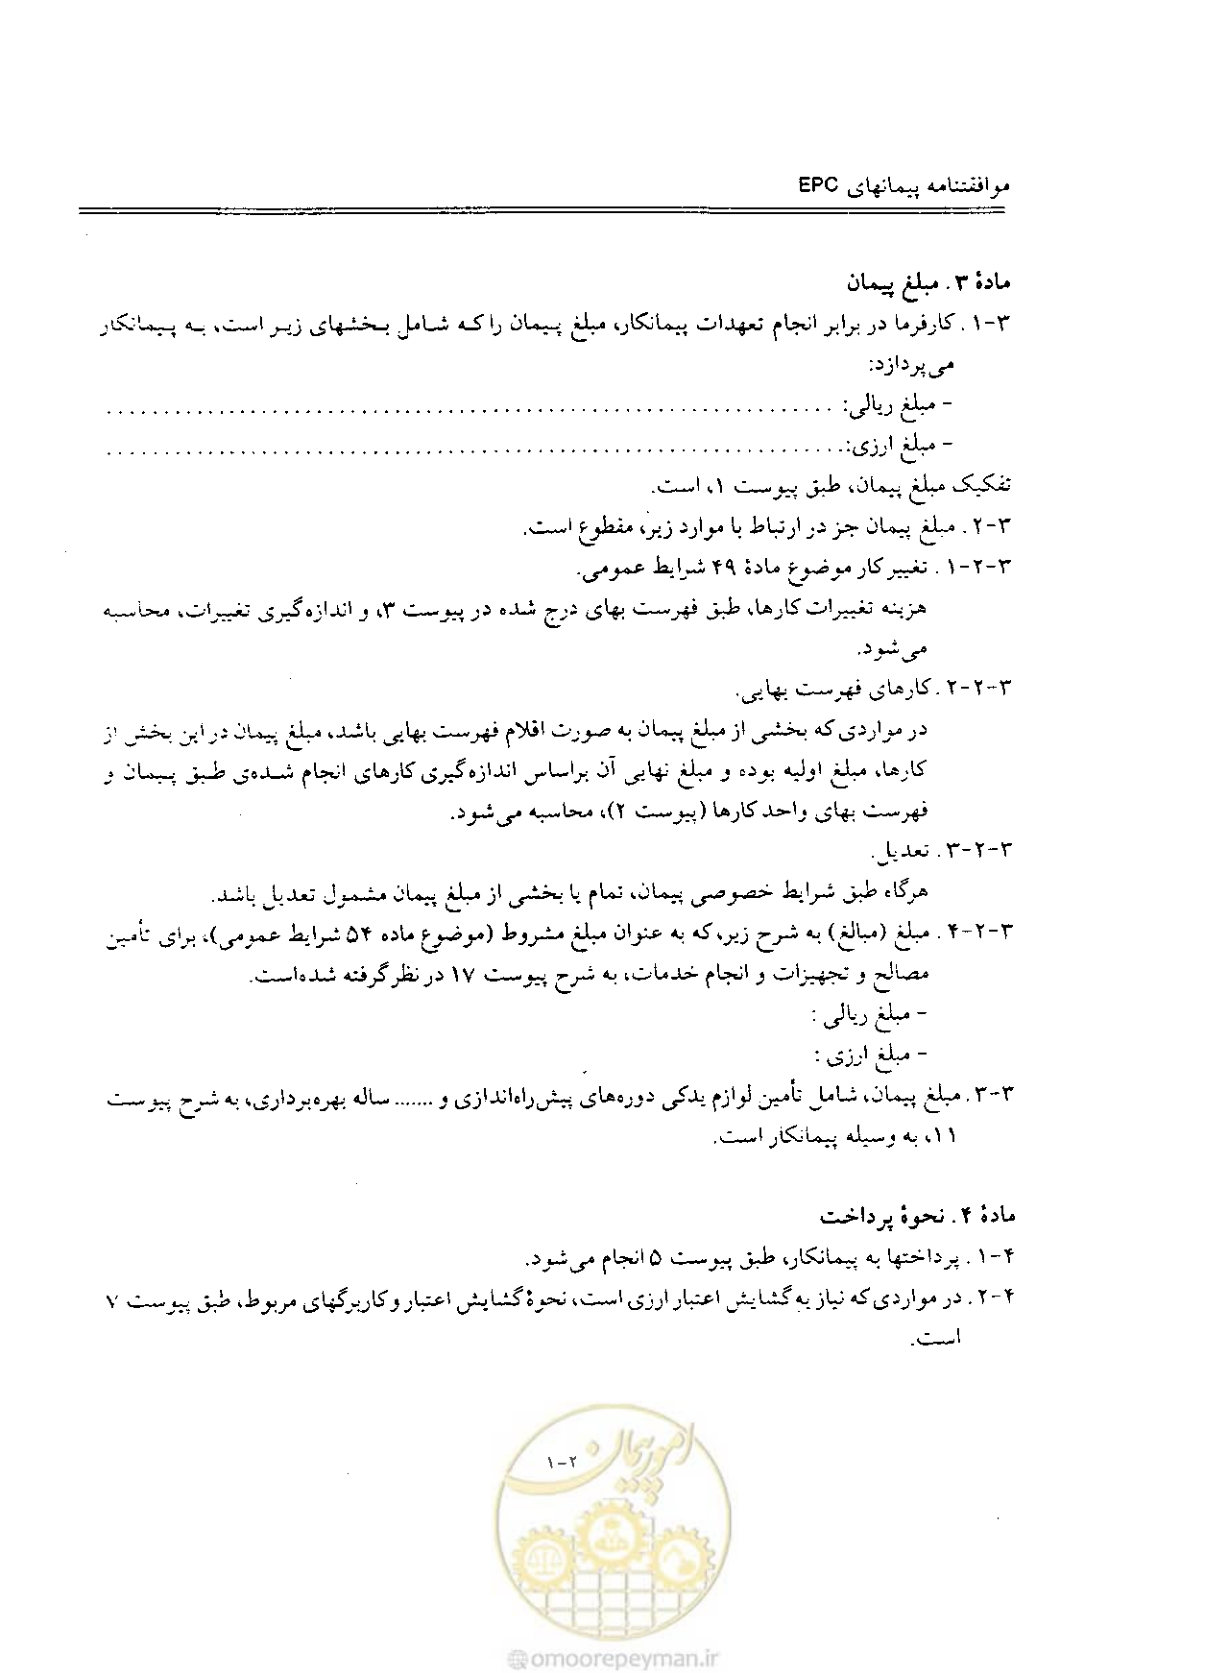 موافقتنامه پیمانهای EPC
مادهٔ ۳. مبلغ پیمان
۱-۳. کارفرما در برابر انجام تعهدات پیمانکار، مبلغ پیمان را که شامل بخشهای زیر است، به پیمانکار
می‌پردازد:
- مبلغ ریالی: ................................................................
- مبلغ ارزی: ................................................................
تفکیک مبلغ پیمان، طبق پیوست ۱، است.
۲-۳. مبلغ پیمان جز در ارتباط با موارد زیر، مقطوع است.
۱-۲-۳. تغییر کار موضوع مادهٔ ۴۹ شرایط عمومی.
هزینه تغییرات کارها، طبق فهرست بهای درج شده در پیوست ۳، و اندازه‌گیری تغییرات، محاسبه
می‌شود.
۲-۲-۳. کارهای فهرست بهایی.
در مواردی که بخشی از مبلغ پیمان به صورت اقلام فهرست بهایی باشد، مبلغ پیمان در این بخش از
کارها، مبلغ اولیه بوده و مبلغ نهایی آن براساس اندازه‌گیری کارهای انجام شده‌ی طبق پیمان و
فهرست بهای واحد کارها (پیوست ۲)، محاسبه می‌شود.
۳-۲-۳. تعدیل.
هرگاه طبق شرایط خصوصی پیمان، تمام یا بخشی از مبلغ پیمان مشمول تعدیل باشد.
۴-۲-۳. مبلغ (مبالغ) به شرح زیر، که به عنوان مبلغ مشروط (موضوع ماده ۵۴ شرایط عمومی)، برای تأمین
مصالح و تجهیزات و انجام خدمات، به شرح پیوست ۱۷ در نظر گرفته شده‌است.
- مبلغ ریالی :
- مبلغ ارزی :
۳-۳. مبلغ پیمان، شامل تأمین لوازم یدکی دوره‌های پیش‌راه‌اندازی و ....... ساله بهره‌برداری، به شرح پیوست
۱۱، به وسیله پیمانکار است.
مادهٔ ۴. نحوهٔ پرداخت
۱-۴. پرداختها به پیمانکار، طبق پیوست ۵ انجام می‌شود.
۲-۴. در مواردی که نیاز به گشایش اعتبار ارزی است، نحوهٔ گشایش اعتبار و کاربرگهای مربوط، طبق پیوست ۷
است.
امور پیمان
۱-۲
@omoorepeyman.ir